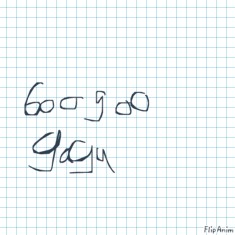 Goo goo
gaga
FlipAnim